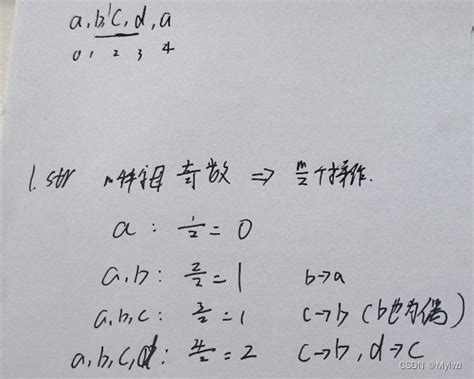 a,b,c,d,a
0 1 2 3 4
1. str m种字母 奇数 => m/2个操作.
a: 1/2=0
a,b: 2/2=1 b→a
a,b,c: 3/2=1 c→b (b也为偶)
a,b,c,d: 4/2=2 c→b, d→c
CSDN @Mylvzi